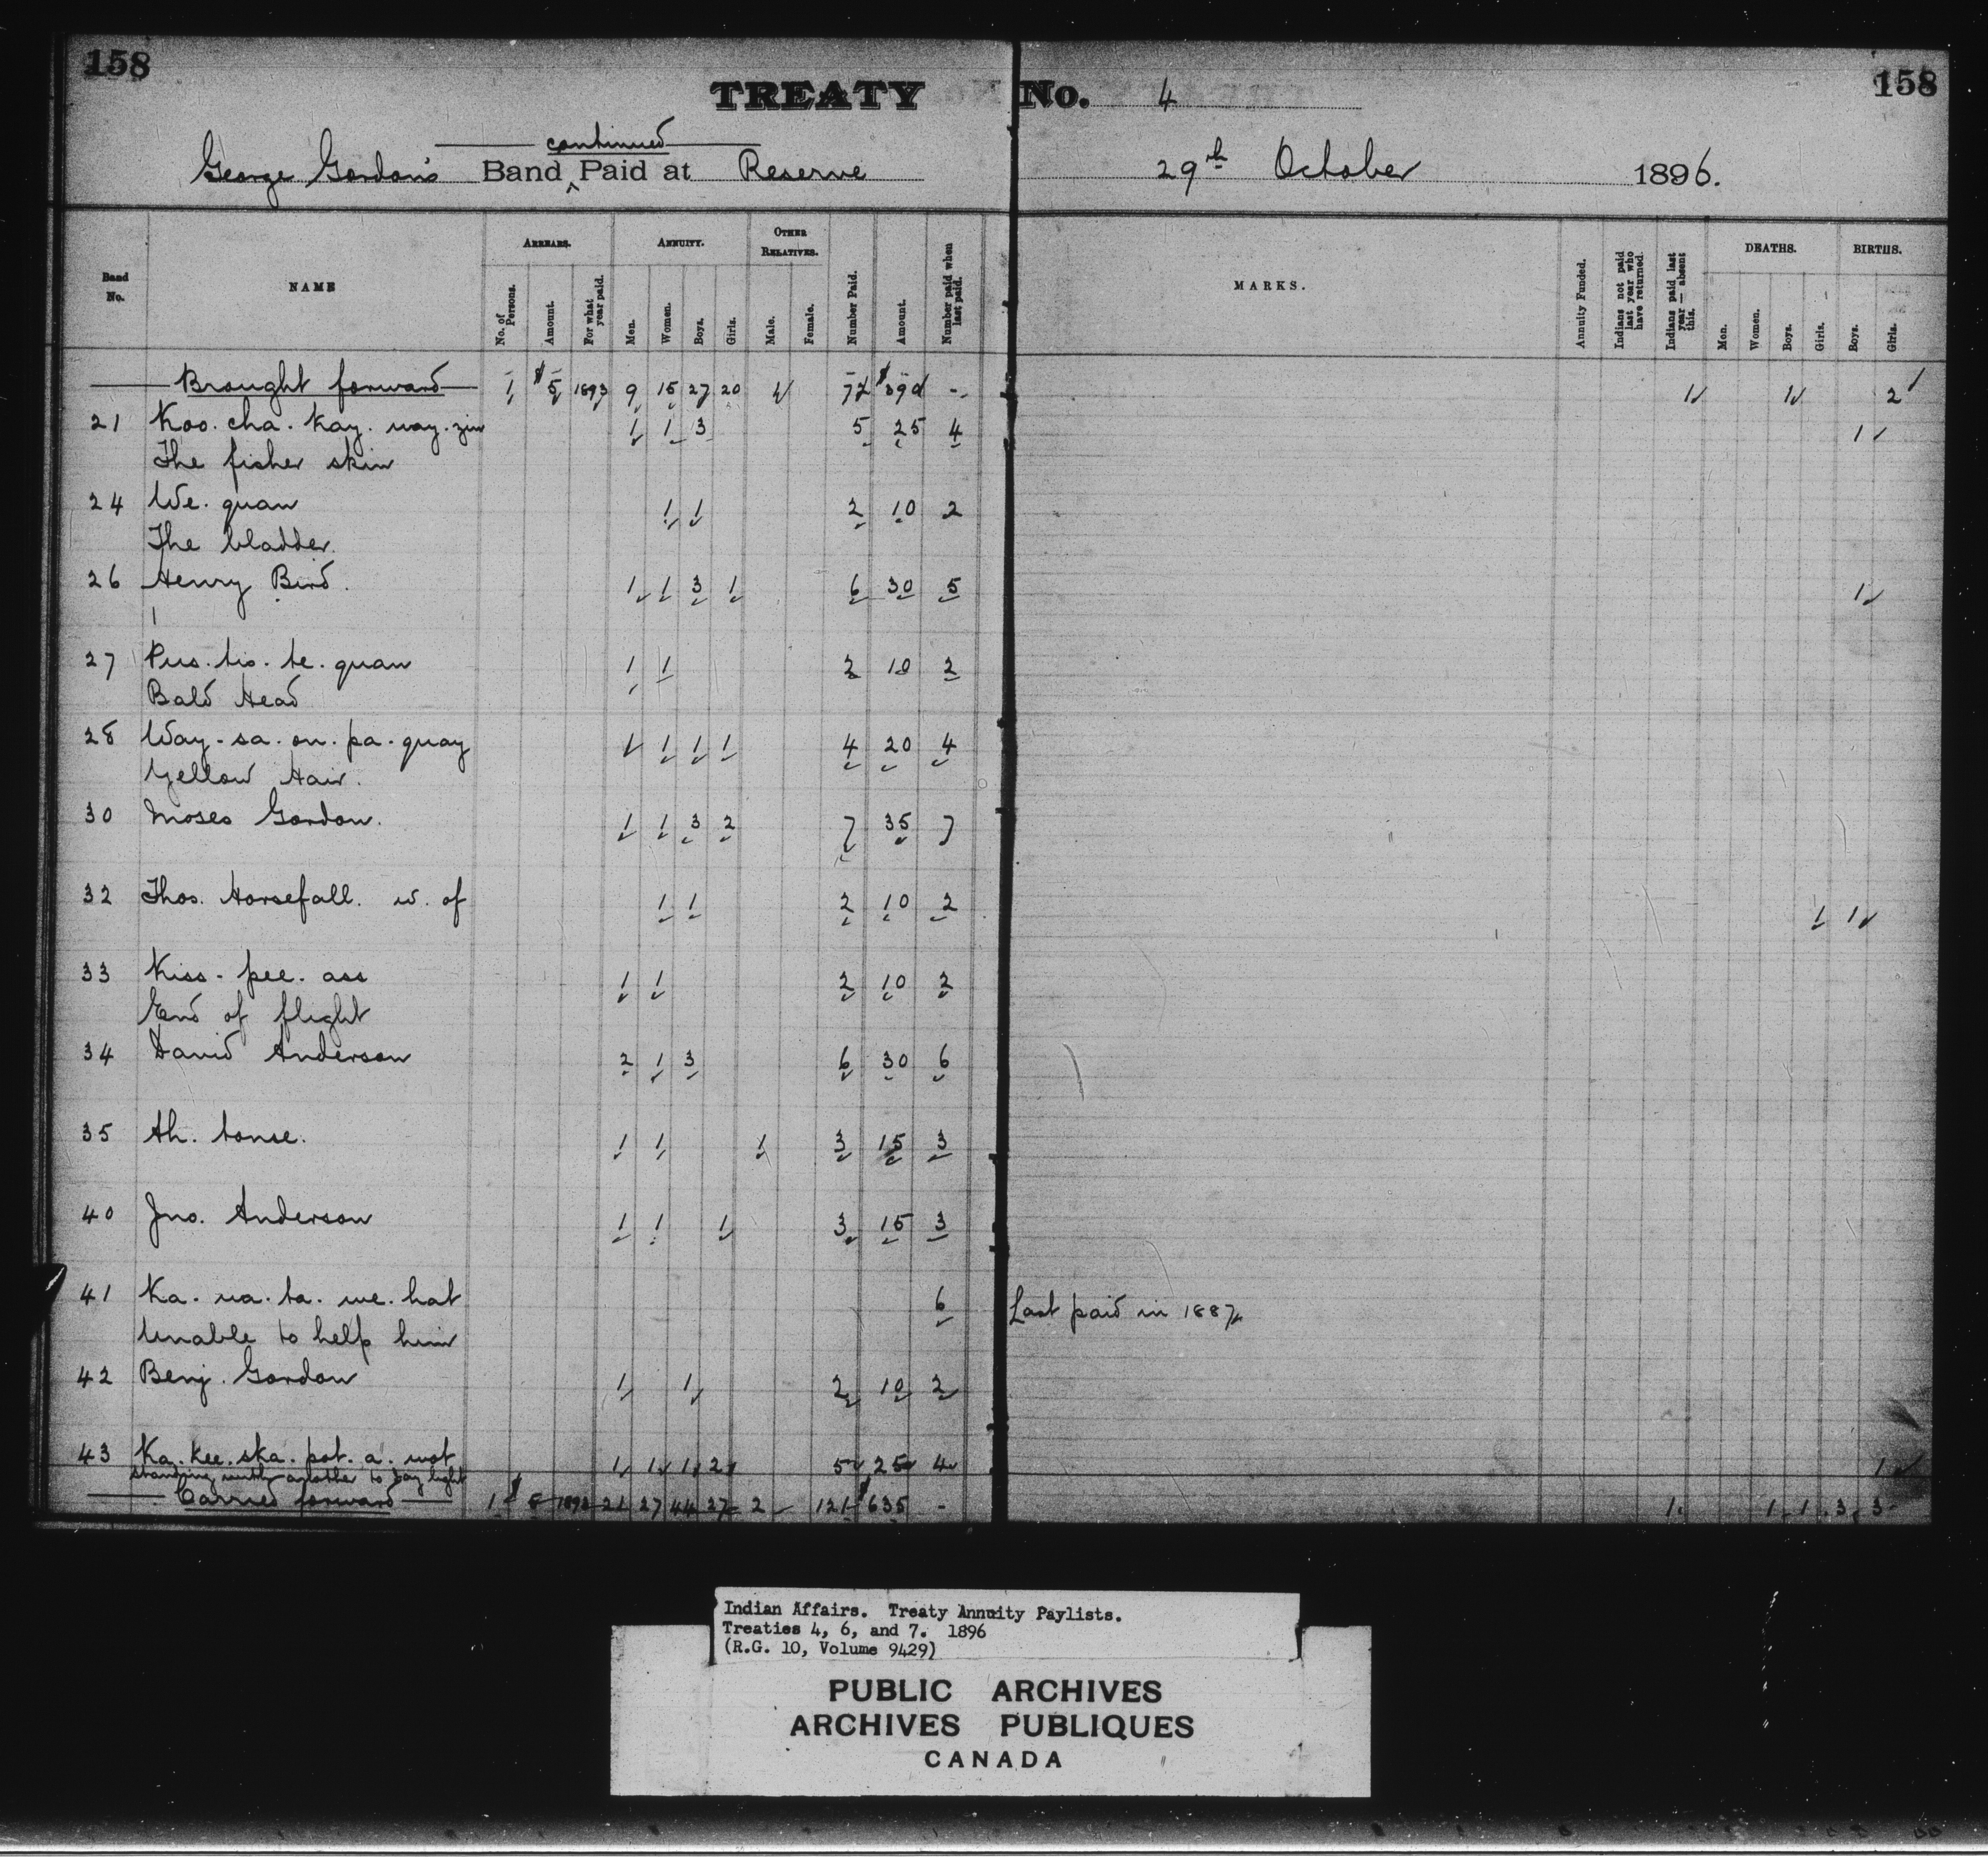 158 158
TREATY No. 4
continued
George Gordon's Band ‸ Paid at Reserve 29th October 1896.
Band No. NAME ARREARS. ANNUITY. OTHER RELATIVES. Number Paid. Amount. Number paid when last paid. MARKS. Annuity Funded. Indians not paid last year who have returned. Indians paid last year — absent this. DEATHS. BIRTHS.
No. of Persons. Amount. For what year paid. Men. Women. Boys. Girls. Male. Female. Men. Women. Boys. Girls. Boys. Girls.
Brought forward 1 $5 1893 9 15 27 20 1 72 $390 - 1 1 2
21 Koo. cha. kay. way. zin 1 1 3 5 25 4 1
The fisher skin
24 We. quan 1 1 2 10 2
The bladder.
26 Henry Bird. 1 1 3 1 6 30 5 1
27 Pus. tis. te. quan 1 1 2 10 2
Bald Head
28 Way - sa. on. pa. quay 1 1 1 1 4 20 4
Yellow Hair.
30 Moses Gordon. 1 1 3 2 7 35 7
32 Thos. Horsefall. w. of 1 1 2 10 2 1 1
33 Kiss - pee. ass 1 1 2 10 2
End of flight
34 David Anderson 2 1 3 6 30 6
35 Ah. tonse. 1 1 1 3 15 3
40 Jno. Anderson 1 1 1 3 15 3
41 Ka. na. ta. we. hat 6 Last paid in 1887
Unable to help him
42 Benj. Gordon 1 1 2 10 2
43 Ka. kee. ska. pot. a. wot 1 1 1 2 5 25 4 1
standing with another to day light
Carried forward 1 $5 1893 21 27 44 27 2 121 $635 - 1 1 1 3 3
Indian Affairs. Treaty Annuity Paylists.
Treaties 4, 6, and 7. 1896
(R.G. 10, Volume 9429)
PUBLIC ARCHIVES
ARCHIVES PUBLIQUES
CANADA